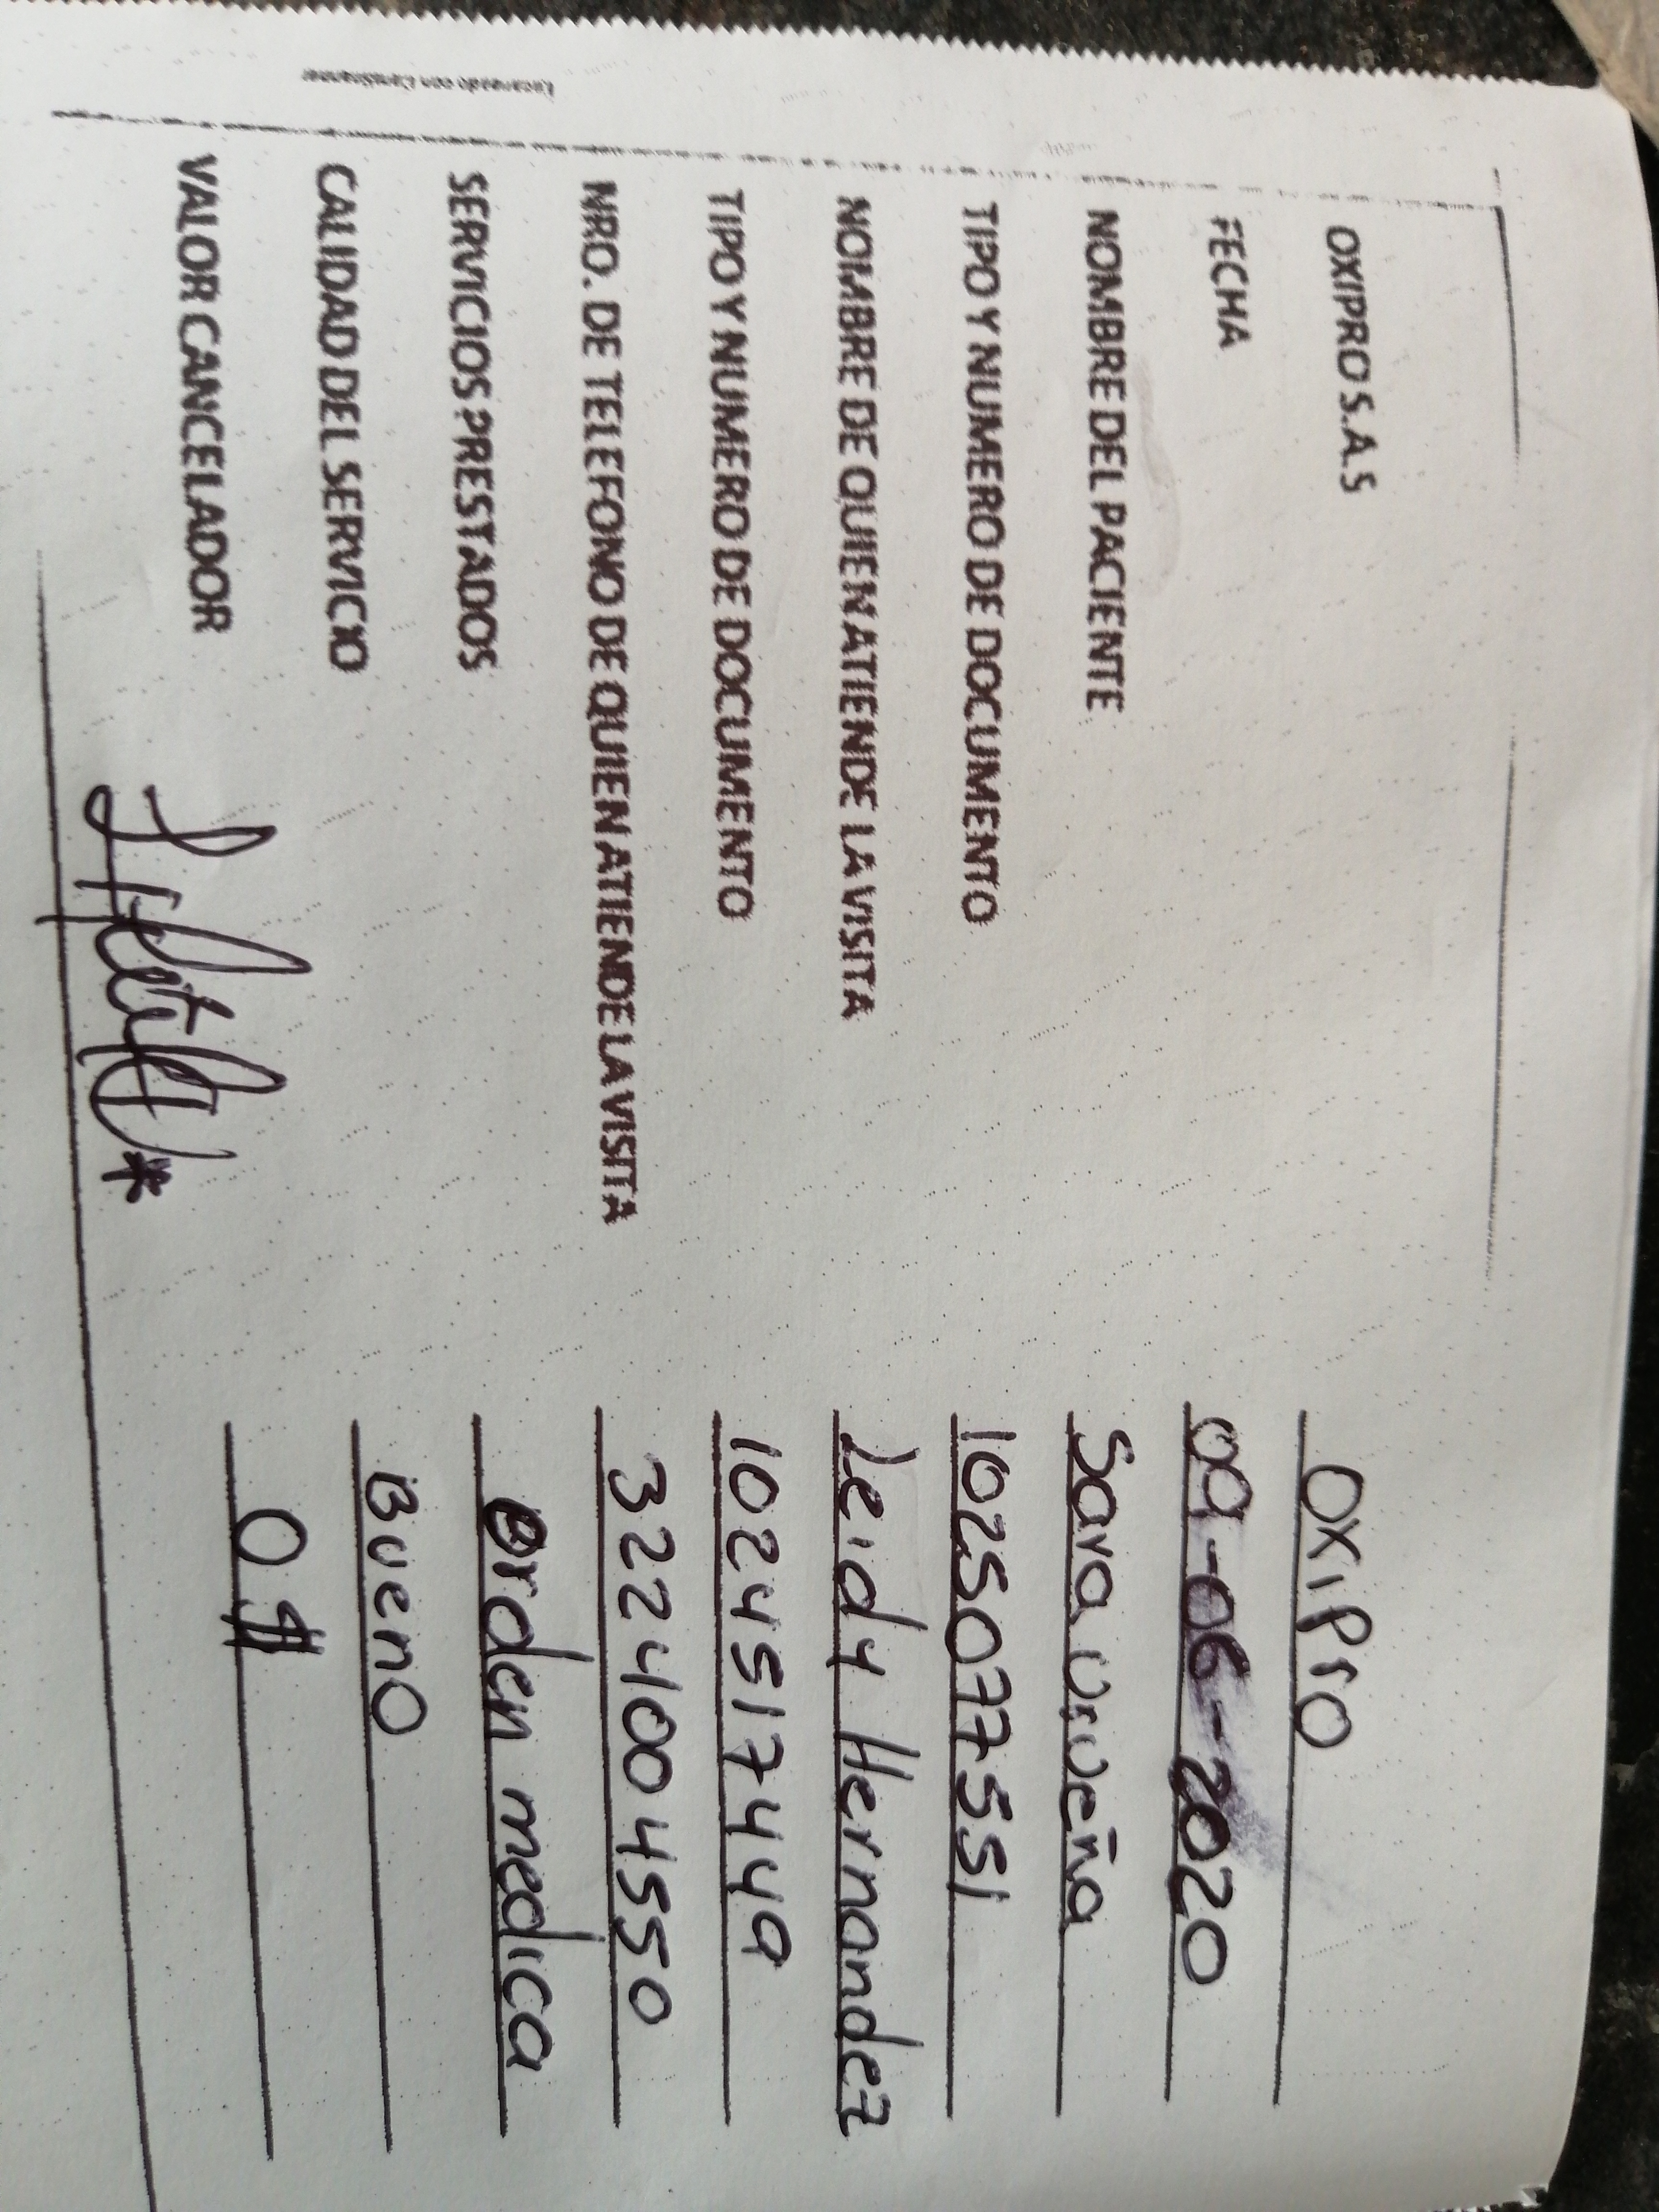 OXIPRO S.A.S OXiPro
FECHA 09-06-2020
NOMBRE DEL PACIENTE Sara Urueña
TIPO Y NUMERO DE DOCUMENTO 1025077551
NOMBRE DE QUIEN ATIENDE LA VISITA Leidy Hernandez
TIPO Y NUMERO DE DOCUMENTO 1024517449
NRO. DE TELEFONO DE QUIEN ATIENDE LA VISITA 3224004550
SERVICIOS PRESTADOS Orden medica
CALIDAD DEL SERVICIO Bueno
VALOR CANCELADOR 0 $
Escaneado con CamScanner